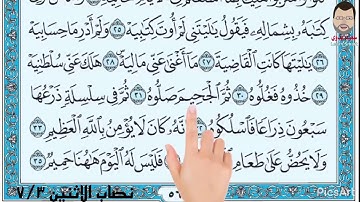 كِتَٰبَهُۥ بِشِمَالِهِۦ فَيَقُولُ يَٰلَيْتَنِى لَمْ أُوتَ كِتَٰبِيَهْ ٢٥ وَلَمْ أَدْرِ مَا حِسَابِيَهْ
٢٦ يَٰلَيْتَهَا كَانَتِ ٱلْقَاضِيَةَ ٢٧ مَآ أَغْنَىٰ عَنِّى مَالِيَهْ ٢٨ هَلَكَ عَنِّى سُلْطَٰنِيَهْ
٢٩ خُذُوهُ فَغُلُّوهُ ٣٠ ثُمَّ ٱلْجَحِيمَ صَلُّوهُ ٣١ ثُمَّ فِى سِلْسِلَةٍ ذَرْعُهَا
سَبْعُونَ ذِرَاعًا فَٱسْلُكُوهُ إِنَّهُۥ كَانَ لَا يُؤْمِنُ بِٱللَّهِ ٱلْعَظِيمِ ٣٣
وَلَا يَحُضُّ عَلَىٰ طَعَامِ فَلَيْسَ لَهُ ٱلْيَوْمَ هَٰهُنَا حَمِيمٌ ٣٥
نصاب الاثنين ٧/٣
PicsArt